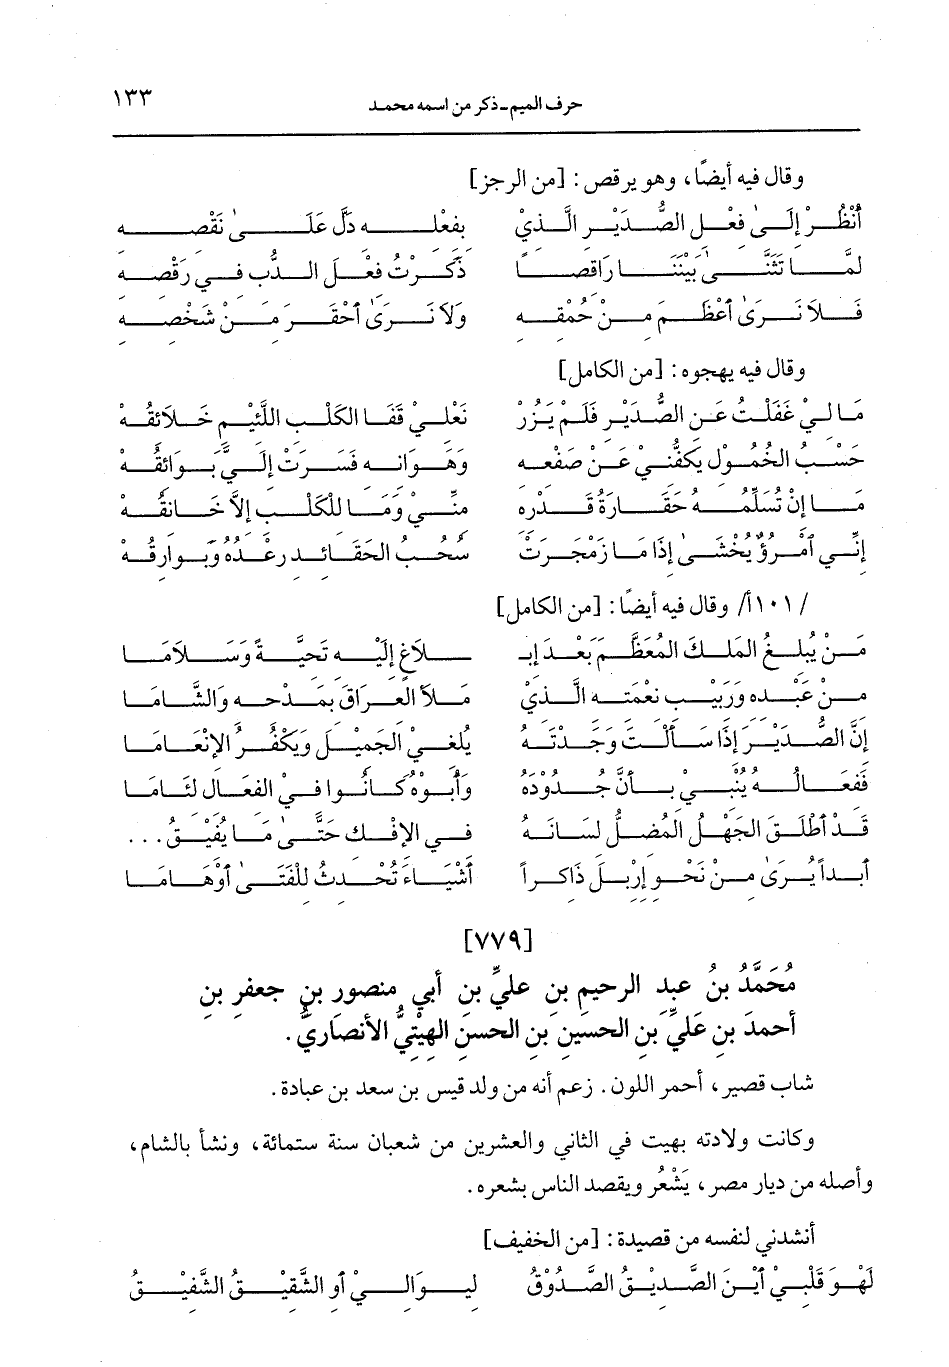 حرف الميم ـ ذكر من اسمه محمد ١٣٣
وقال فيه أيضًا، وهو يرقص: [من الرجز]
أُنْظُرْ إِلَىٰ فِعْلِ الصُّدَيْرِ الَّذيْ بِفعْلِهِ دَلَّ عَلَىٰ نَقْصِهِ
لمَّا تَثَنَّىٰ بَيْنَنَا رَاقِصًا ذَكَرْتُ فِعْلَ الدُّبِ في رَقْصِهِ
فَلاَ نَرَىٰ أَعْظَمَ مِنْ حُمْقِهِ وَلاَ نَرَىٰ أَحْقَرَ مِنْ شَخْصِهِ
وقال فيه يهجوه: [من الكامل]
مَا لِيْ غَفَلْتُ عَنِ الصُّدَيْرِ فَلَمْ يَزُرْ نَعْلِيْ قَفَا الكَلْبِ اللَّئِيْمِ خَلائِقُهْ
حَسْبُ الخُمُوْلِ يَكُفُّنِيْ عَنْ صَفْعِهِ وَهَوَانِهِ فَسَرَتْ إِلَيَّ بَوَائِقُهْ
مَا إِنْ تُسَلِّمُهُ حَقَارَةُ قَدْرِهِ مِنِّيْ وَمَا لِلْكَلْبِ إِلاَّ خَانِقُهْ
إِنِّي أَمْرُؤٌ يُخْشَىٰ إِذَا مَا زَمْجَرَتْ سُحُبُ الحَقَائِدِ رَعْدُهُ وَبَوارِقُهْ
/١٠١أ/ وقال فيه أيضًا: [من الكامل]
مَنْ يُبْلِغُ المَلِكَ المُعَظَّمَ بَعْدَ إِبـ ـلاغٍ إِلَيْهِ تَحِيَّةً وَسَلامَا
مِنْ عَبْدِهِ وَرَبِيْبِ نِعْمَتِهِ الَّذِيْ مَلأَ العِرَاقَ بِمَدْحِهِ وَالشَّامَا
إِنَّ الصُّدَيْرَ إِذَا سَأَلْتَ وَجَدْتَهُ يُلْغِيْ الجَمِيْلَ وَيَكْفُرُ الإِنْعَامَا
فَفِعَالُهُ يُنْبِيْ بِأَنَّ جُدُودَهُ وَأَبُوْهُ كَانُوا فِيْ الفَعَالِ لِئَامَا
قَدْ أَطْلَقَ الجَهْلُ المُضِلُّ لِسَانَهُ فِي الإِفْكِ حَتَّىٰ مَا يُفِيْقُ...
أَبداً يُرَىٰ مِنْ نَحْوِ إِرْبِلَ ذَاكِراً أَشْيَاءَ تُحْدِثُ لِلْفَتَىٰ أَوْهَامَا
[٧٧٩]
مُحَمَّدُ بنُ عبدِ الرحيمِ بنِ عليِّ بنِ أبي منصورِ بنِ جعفرِ بنِ
أحمدَ بنِ عَليِّ بنِ الحسينِ بنِ الحسنِ الهِيْتِيُّ الأنصَاريُّ.
شاب قصير، أحمر اللون. زعم أنه من ولد قيس بن سعد بن عبادة.
وكانت ولادته بهيت في الثاني والعشرين من شعبان سنة ستمائة، ونشأ بالشام،
وأصله من ديار مصر، يَشْعُر ويقصد الناس بشعره.
أنشدني لنفسه من قصيدة: [من الخفيف]
لَهْوَ قَلْبِيْ أَيْنَ الصَّدِيْقُ الصَّدُوْقُ لِيوَالِيْ أو الشَّقِيْقُ الشَّفِيْقُ